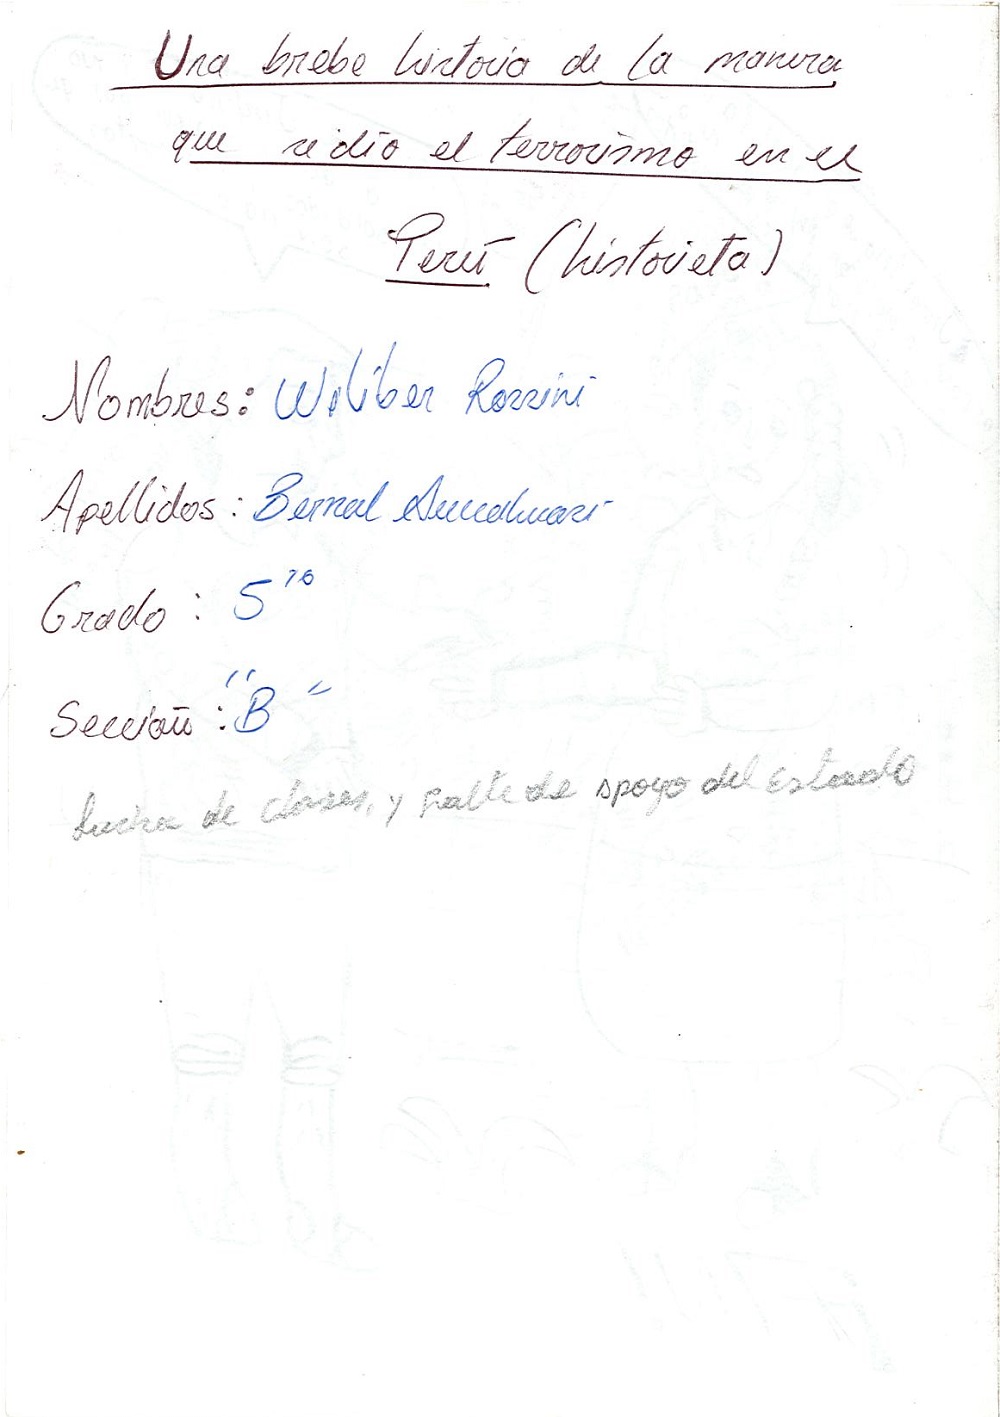 Una brebe historia de la manera
que se dio el terrorismo en el
Perú (historieta)
Nombres: Wiliber Rossini
Apellidos: Bernal
Grado: 5to
Sección: "B"
Lucha de clases, y falta de apoyo del estado